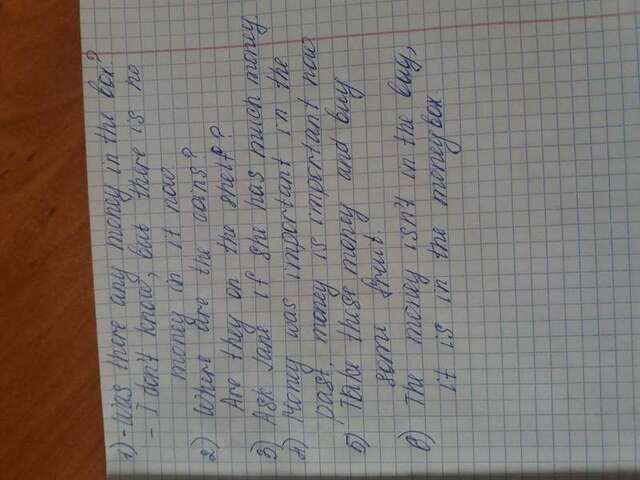 1) - Was there any money in the box?
- I don't know, but there is no
money in it now
2) What are the coins?
Are they on the shelf?
3) Ask Jane if she has much money.
4) Money was important in the
past, money is important now
5) Take these money and buy
some fruit.
6) The money isn't in the bag,
it is in the money box